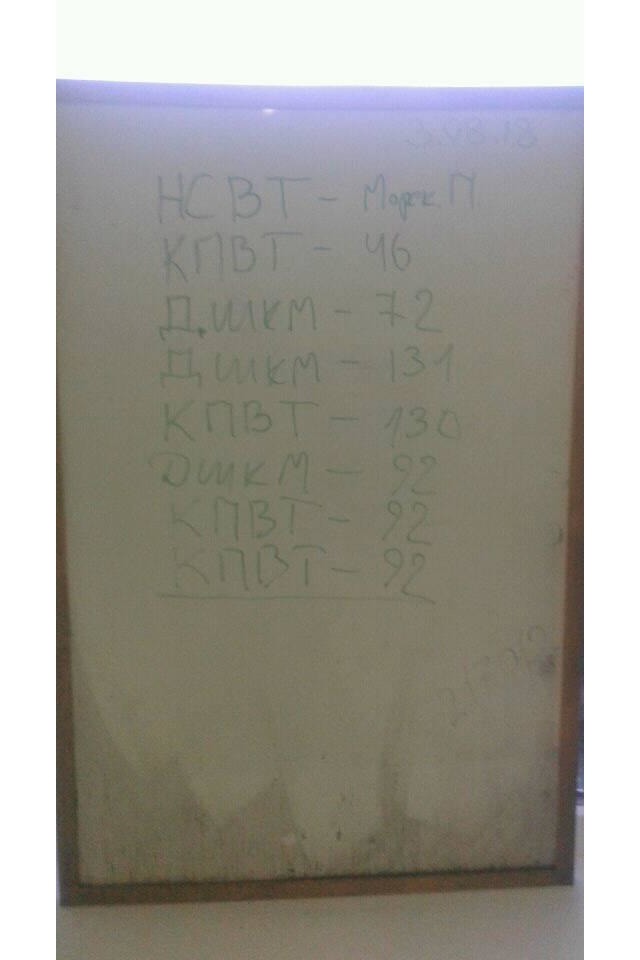 3.08.18
НСВТ - Морск П
КПВТ - 46
Д.ШКМ - 72
ДШКМ - 131
КПВТ - 130
ДШКМ - 92
КПВТ - 92
КПВТ - 92